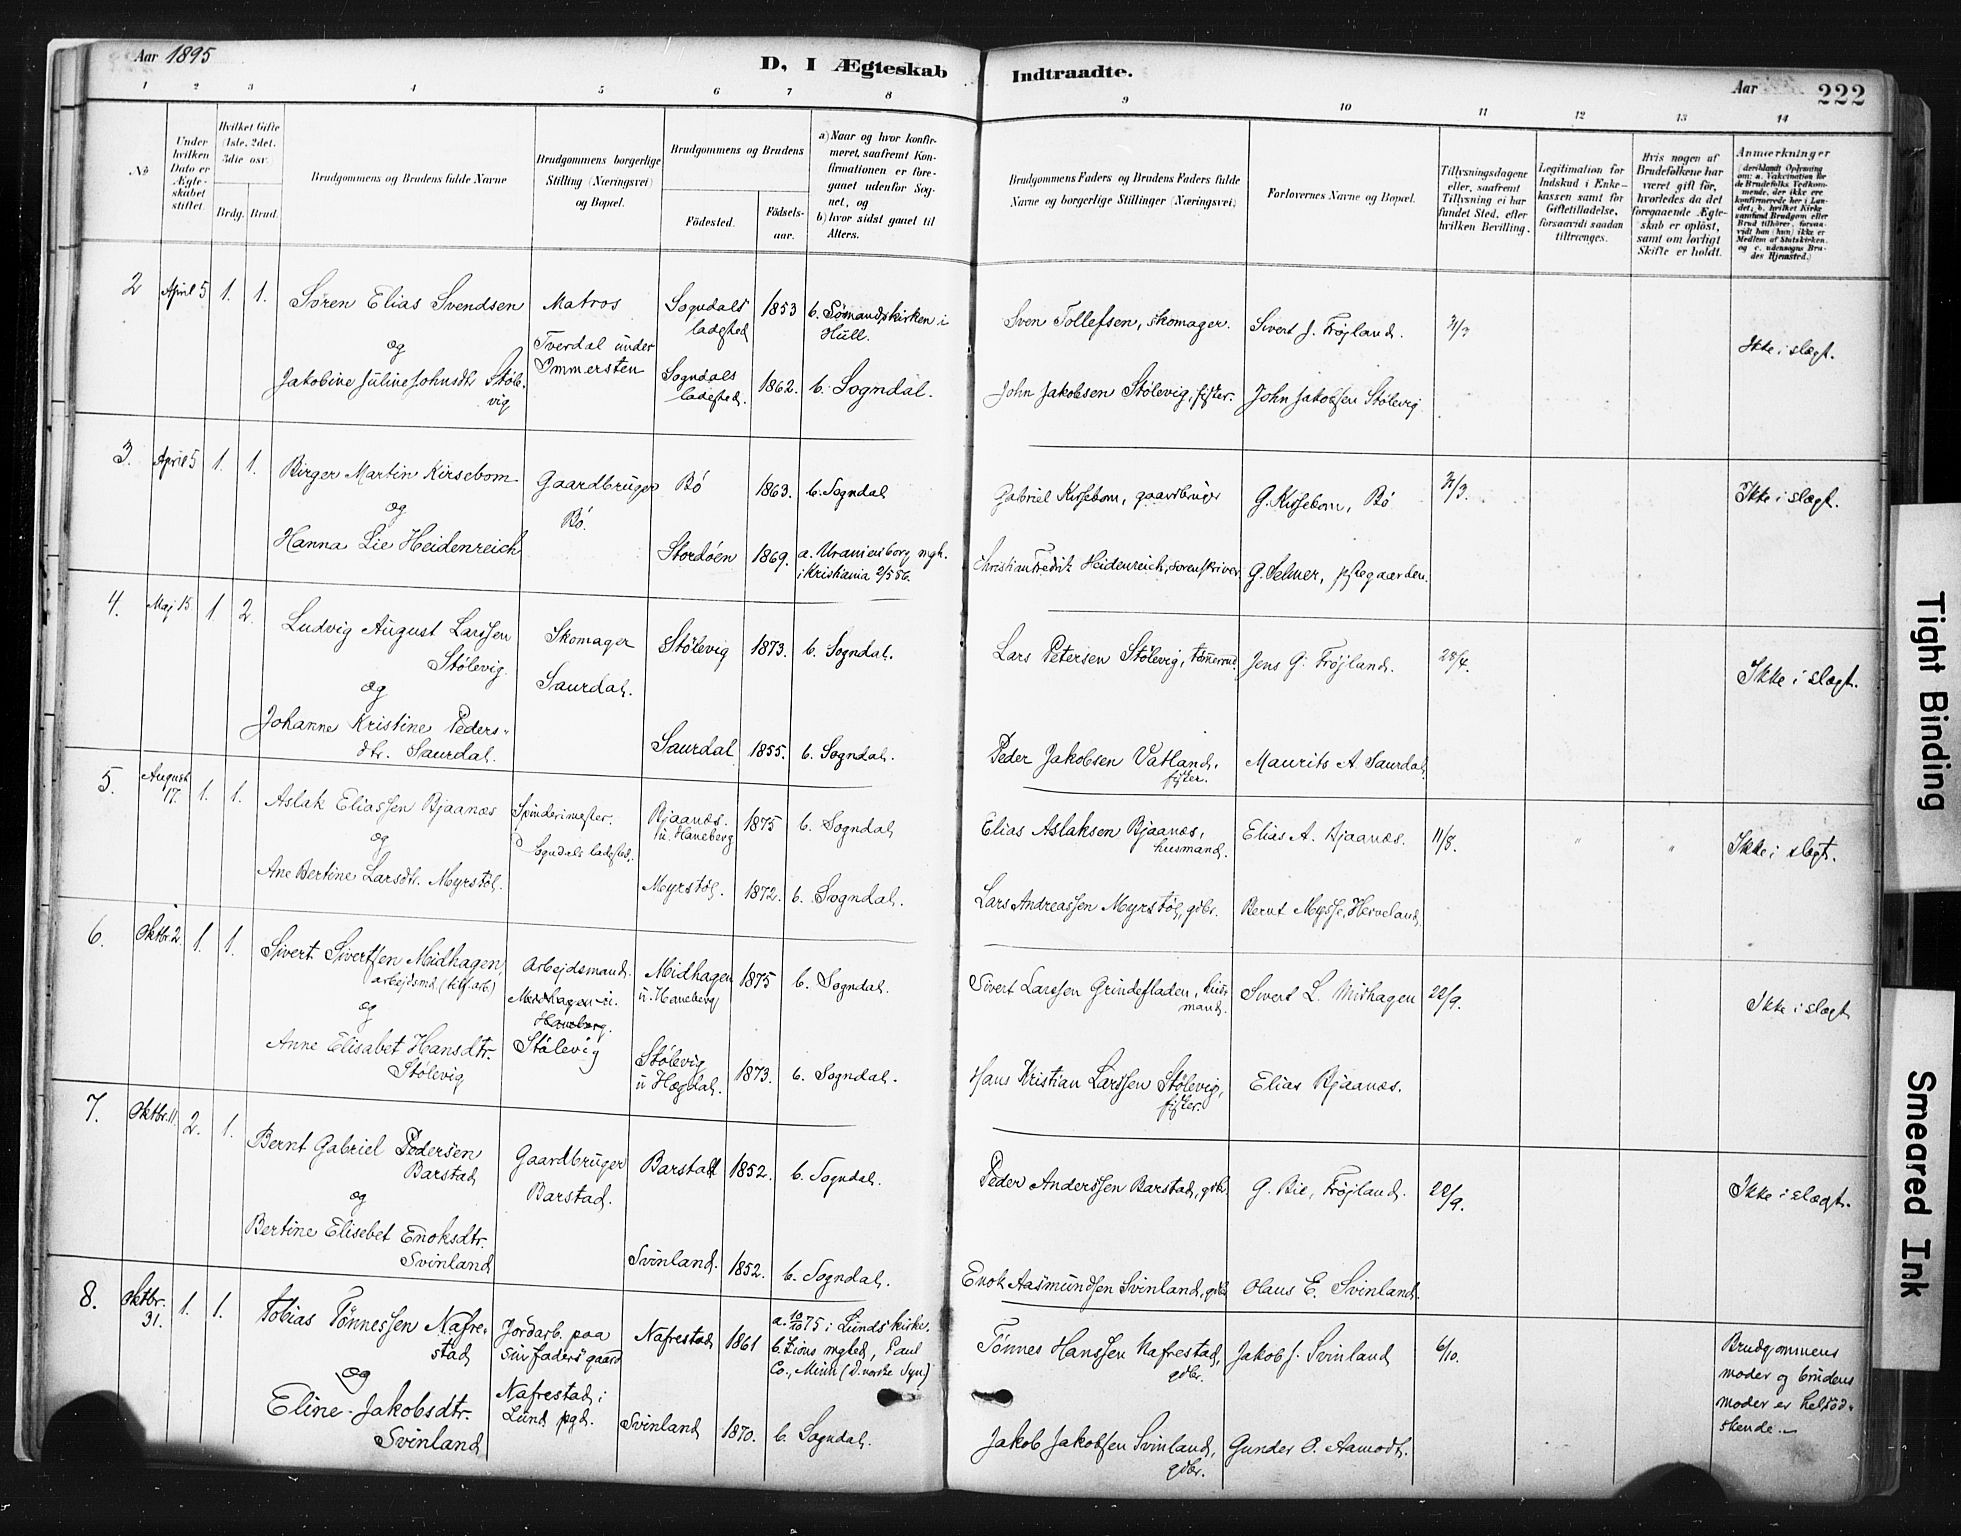 Aar 1895
D, I Ægteskab
Indtraadte.
Aar
222
1 2 3 4 5 6 7 8 9 10 11 12 13 14
No
Under hvilken Dato er Ægteskabet stiftet.
Hvilket Gifte (1ste, 2det, 3die osv.
Brdg. Brud.
Brudgommens og Brudens fulde Navne
Brudgommens borgerlige Stilling (Næringsvei) og Bopæl.
Brudgommens og Brudens
Fødested.
Fødsels-aar.
a) Naar og hvor konfirmeret, saafremt Konfirmationen er foregaaet udenfor Sognet, og
b) hvor sidst gaaet til Alters.
Brudgommens Faders og Brudens Faders fulde Navne og borgerlige Stillinger (Næringsvei)
Forlovernes Navne og Bopæl.
Tillysningsdagene eller, saafremt Tillysning ei har fundet Sted, efter hvilken Bevilling.
Legitimation for Indskud i Enkekassen samt for Giftetilladelse, forsaavidt saadan tiltrænges.
Hvis nogen af Brudefolkene har været gift før, hvorledes da det foregaaende Ægteskab er opløst, samt om lovligt Skifte er holdt.
Anmærkninger
(deriblandt Oplysning om: a. Vakcination for de Brudefolks Vedkommende, der ikke ere konfirmerede her i Landet; b. hvilket Kirkesamfund Brudgom eller Brud tilhører, forsaavidt han (hun) ikke er Medlem af Statskirken, og c. udensogns Brudes Hjemsted.)
2 April 5 1. 1. Søren Elias Svendsen
og
Jakobine Juline Johnsdtr Støle-
vig
Matros
Tverdal under
Ommersten
Sogndals
ladested 1853 b. Sømandskirken i
Hull.
Sogndals
ladested. 1862. b. Sogndal.
Sven Tollefsen, skomager. Sivert J. Frøjland. 31/3
John Jakobsen Stølevig, fisker. John Jakobsen Stølevig
Ikke i slægt.
3. April 5 1. 1. Birger Martin Kirsebom
og
Hanna Lie Heidenreich
Gaardbruger
Bö.
Bö 1863. b. Sogndal
Stordøen 1869. a. Uraniensborg mgh.
i Kristiania 2/5 86.
Gabriel Kirsebom, gaardbruger G. Kirsebom, Bö 31/3.
Christian Fredrik Heidenreich, sorenskriver G. Selmer, prestegaarden.
Ikke i slægt.
4. Maj 15. 1 2. Ludvig August Larssen
Stølevig.
og
Johanne Kristine Peders-
dtr. Saurdal.
Skomager
Saurdal.
Stølevig 1873. b. Sogndal.
Saurdal 1855. b. Sogndal.
Lars Petersen Stølevig, tømmermd. Jens G. Frøjland. 28/4.
Peder Jakobsen Vatland,
fisker. Maurits A Saurdal
Ikke i slægt.
5. August
17. 1. 1. Aslak Eliassen Bjaanæs
og
Ane Bertine Larsdtr. Myrstøl.
Spinderimester.
Sogndals ladested.
Bjaanæs.
u. Haneberg 1875 b. Sogndal
Myrstøl. 1872. b. Sogndal.
Elias Aslaksen Bjaanæs,
husmand. Elias A. Bjaanæs. 11/8. " "
Lars Andreassen Myrstøl, gdbr. Bernt Mysse, Herveland.
Ikke i slægt.
6. Oktbr. 2. 1. 1. Sivert Sivertsen Midhagen,
arbejdsmd. (telef.arb.)
og
Anne Elisabet Hansdtr.
Stølevig
Arbejdsmand.
Midhagen u.
Haneberg.
Stølevig
Midhagen
u. Haneberg 1875 b. Sogndal.
Stølevig
u Hægdal. 1873. b. Sogndal.
Sivert Larssen Grindefladen, hus-
mand. Sivert L. Midhagen 22/9.
Hans Kristian Larssen Stølevig,
fisker. Elias Bjaanæs.
Ikke i slægt
7. Oktbr. 11. 2. 1. Bernt Gabriel Pedersen
Barstad
og
Bertine Elisebet Enoksdtr.
Svinland
Gaardbruger
Barstad.
Barstad 1852. b. Sogndal.
Svinland. 1852. b. Sogndal.
Peder Anderssen Barstad, gdbr. G. Bie, Frøjland. 22/9.
Enok Aasmundsen Svinland, gdbr. Olaus E. Svinland.
Ikke i slægt.
8. Oktbr.
31. 1. 1. Tobias Tønnessen Nafre-
stad
og
Eline Jakobsdtr.
Svinland
Jordarb. paa
sin faders gaard
Nafrestad i
Lund pgd.
Nafrestad 1861 a. 10/10 75 i Lunds kirke.
b. Zions mghed, Paul
Co., Minn (D. norske Syn)
Svinland 1870. b. Sogndal.
Tønnes Hanssen Nafrestad,
gdbr. Jakob J. Svinland 6/10.
Jakob Jakobsen Svinland,
gdbr. Gunder O. Aamodt.
Brudgommens
moder og brudens
moder er helsød-
skende.
Tight Binding
Smeared Ink